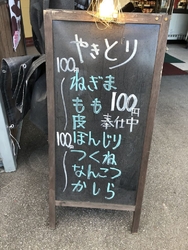 やきとり
100円
ねぎま
もも 100円
皮 奉仕中
100円
ぼんじり
つくね
なんこつ
かしら